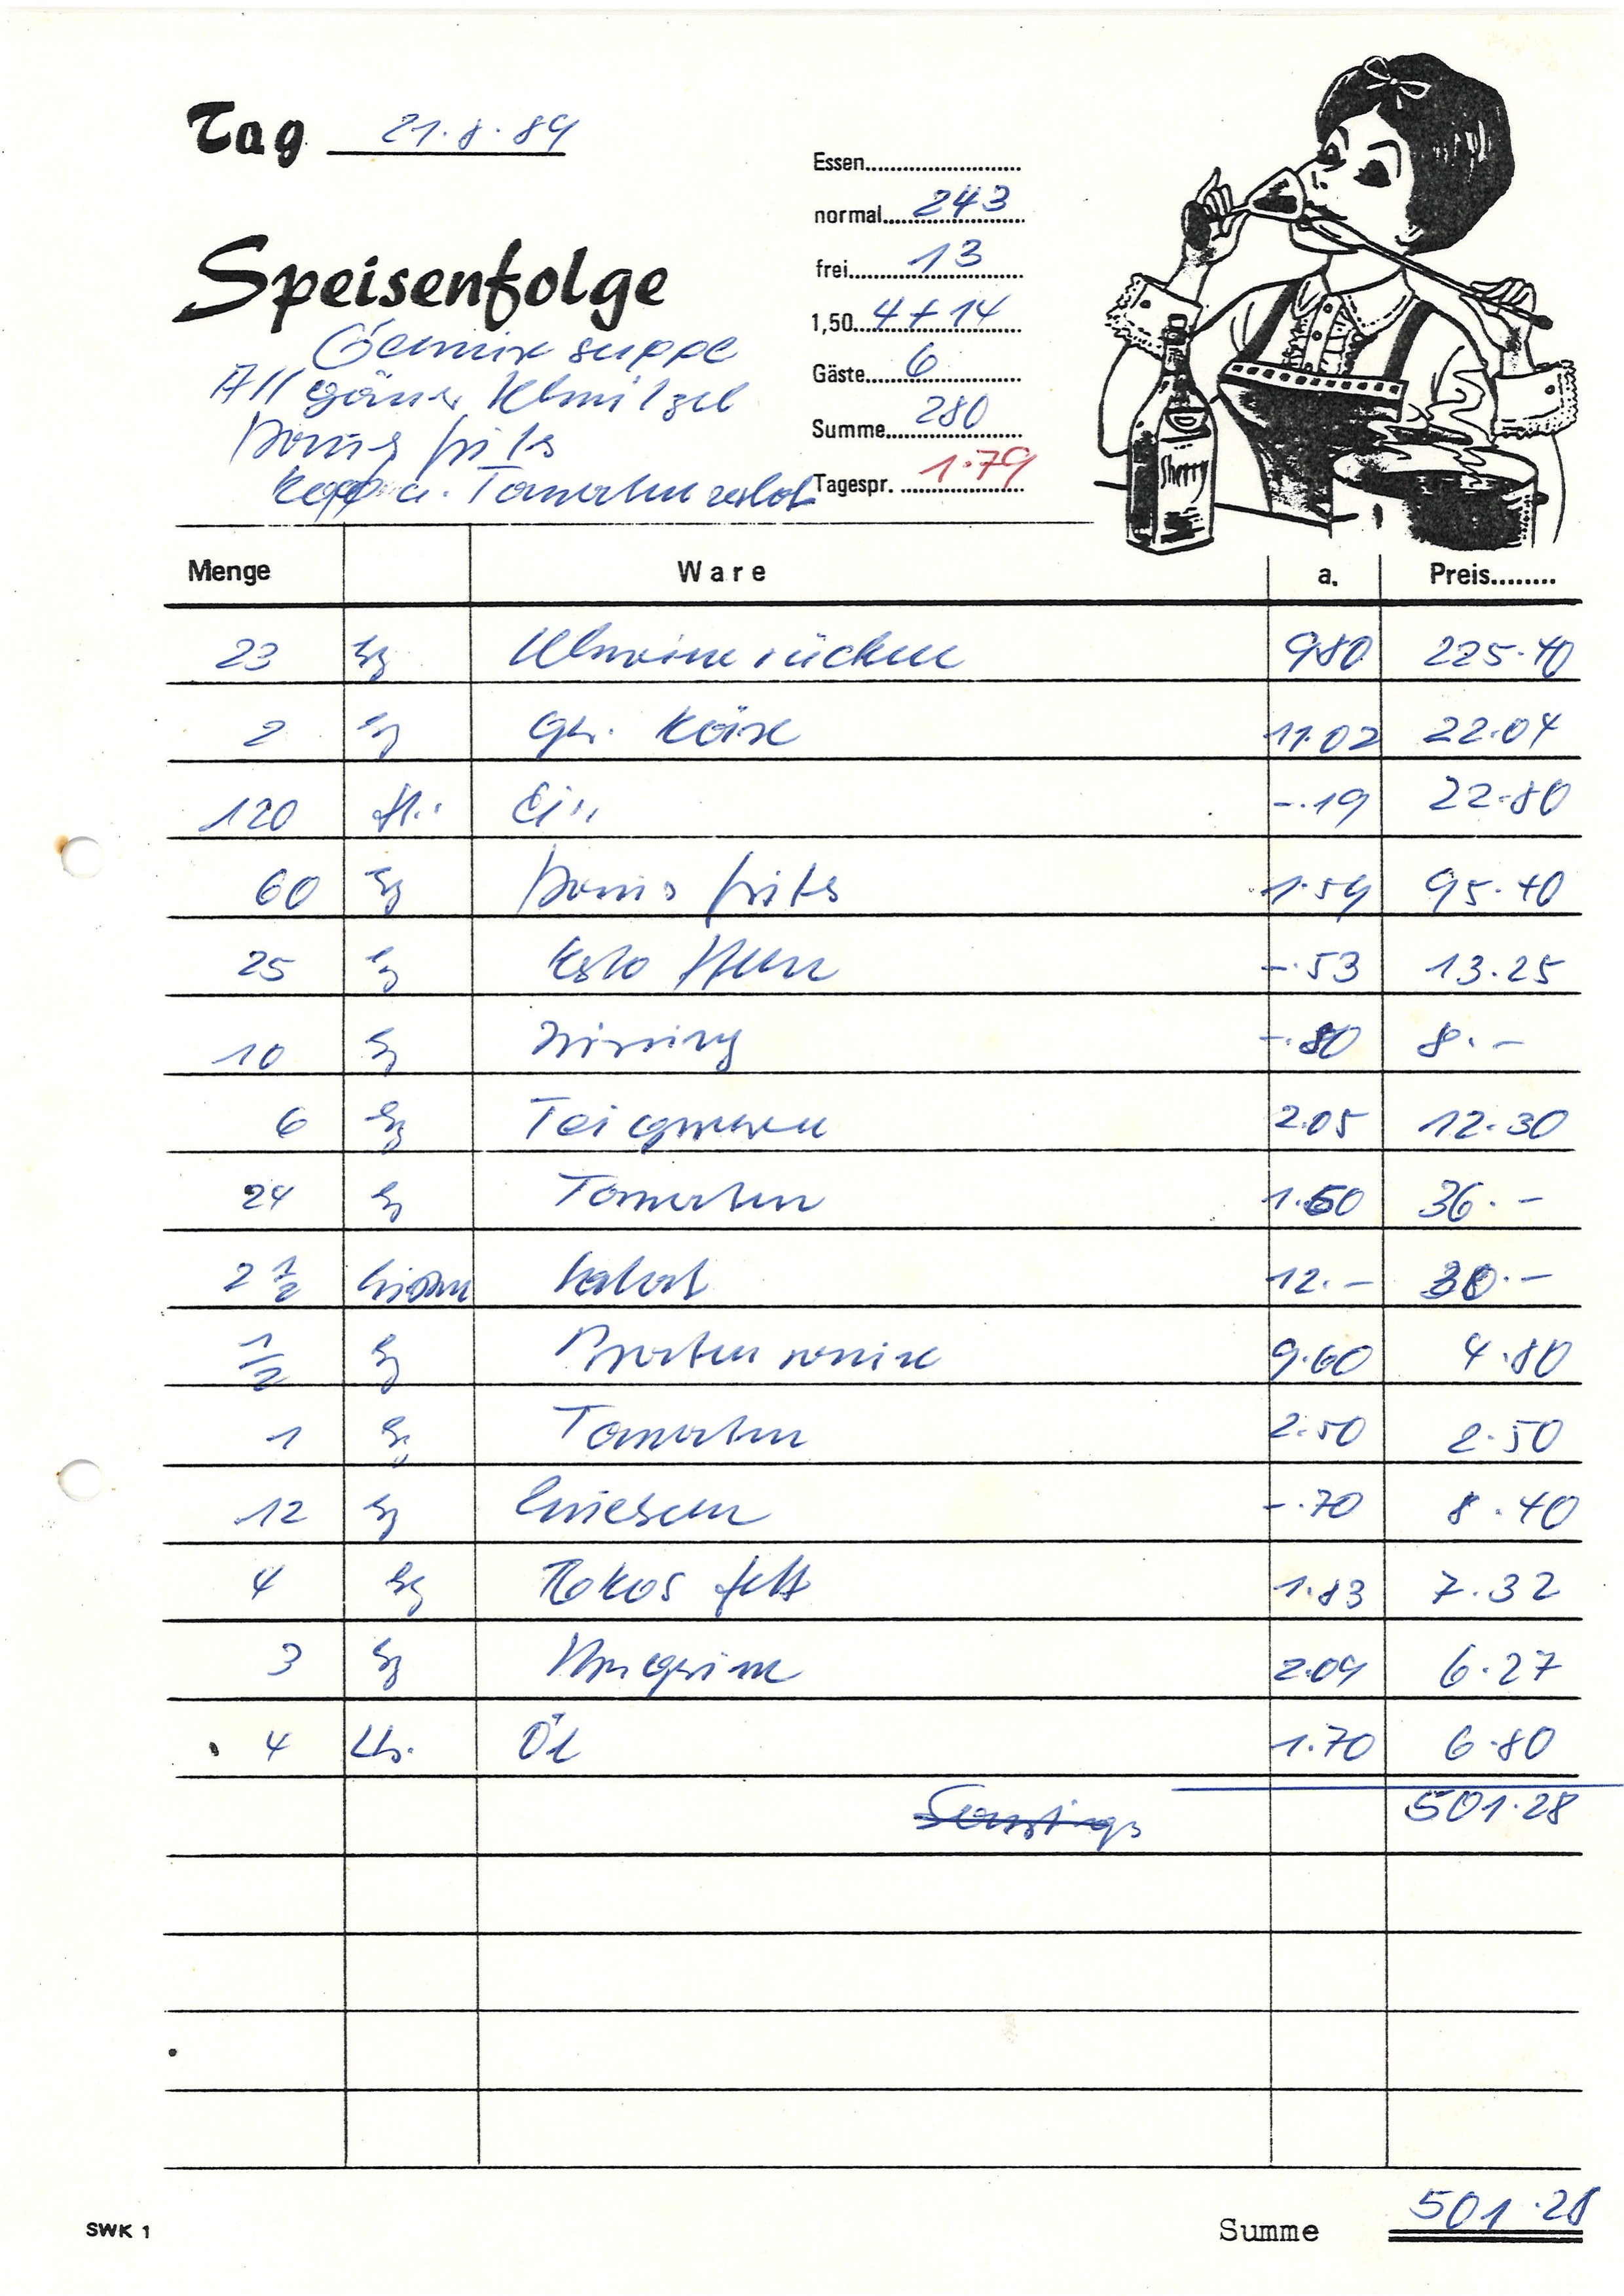 Tag 21.8.89
Essen
normal 243
frei 13
1,50 4+14
Gäste 6
Summe 280
Tagespr. 1.79
Speisenfolge
Gemüsesuppe
Allgäuer Schnitzel
Pommes frits
Kopf u. Tomatensalat
Sherry
Menge Ware a. Preis
23 kg Schweinerücken 9.80 225.40
2 kg Käse 11.02 22.04
120 St. Eier -.19 22.80
60 kg Pommes frits 1.59 95.40
25 kg -.53 13.25
10 kg Wirsing -.80 8.-
6 kg Teigwaren 2.05 12.30
24 kg Tomaten 1.50 36.-
2 1/2 Kisten Salat 12.- 30.-
1/2 kg Bratensauce 9.60 4.80
1 kg Tomaten 2.50 2.50
12 kg Zwiebeln -.70 8.40
4 kg Kokosfett 1.83 7.32
3 kg Margarine 2.09 6.27
4 Ltr. Öl 1.70 6.80
501.28
SWK 1
Summe 501.28